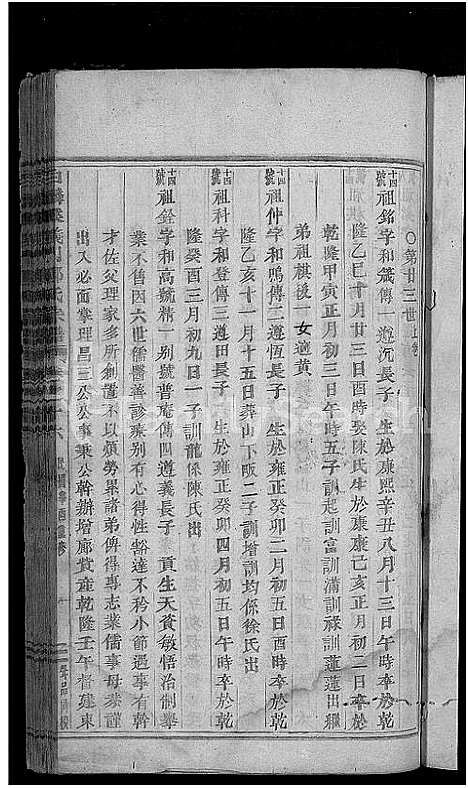 ○第廿三世上卷
十四號 祖銘字和箴傳一遵沉長子 生於康熙辛丑八月十三日午時卒於乾
隆乙巳十月廿三日酉時娶陳氏生於康康己亥正月初二日卒於
乾隆甲寅正月初三日午時五子訓起訓富訓滿訓祿訓蓮蓮出繼
弟祖祺後一女適黃
十四號 祖仲字和鳴傳二遵恆長子 生於雍正癸卯二月初五日酉時卒於乾
隆乙亥十一月十五日葬山下畈二子訓增訓均係徐氏出
十四號 祖科字和登傳三遵田長子 生於雍正癸卯四月初五日午時卒於乾
隆癸酉三月初九日一子訓龍係陳氏出
十四號 祖銓字和高號精一別號普庵傳四遵義長子 貢生天資敏悟治制舉
業不售因六世儒醫善診疾別有心得性豁達不矜小節遇事有幹
才佐父理家多所創置不以煩勞累諸弟俾得專志業儒事母恭謹
出入必面掌理昌三公公事秉公幹辦增廊貲產乾隆壬午督建東